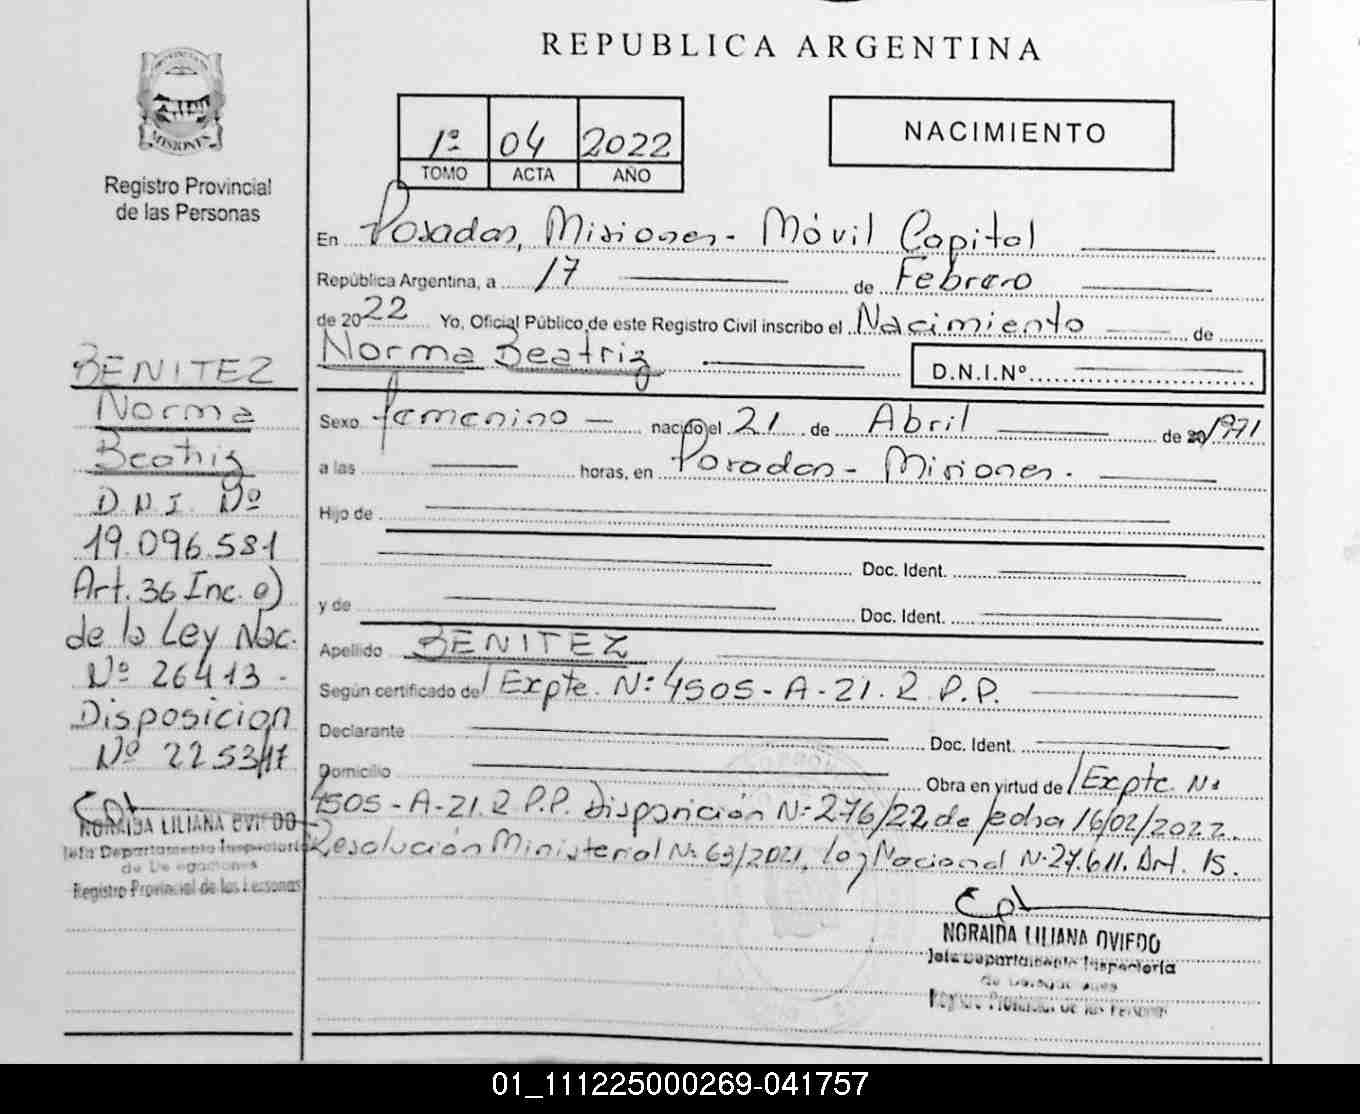 REPUBLICA ARGENTINA
MISIONES
Registro Provincial
de las Personas
1º 04 2022
TOMO ACTA AÑO
NACIMIENTO
En Posadas, Misiones - Móvil Capital
República Argentina, a 17 de Febrero
de 2022 Yo, Oficial Público de este Registro Civil inscribo el Nacimiento de
Norma Beatriz D.N.I.Nº
Sexo femenino - nacido el 21 de Abril de 20 1971
a las horas, en Posadas - Misiones.
Hijo de
Doc. Ident.
y de Doc. Ident.
Apellido BENITEZ
Según certificado de Expte. Nº 4505-A-21. R P.P.
Declarante Doc. Ident.
Domicilio Obra en virtud de Expte. Nº
4505-A-21. R P.P. Disposición Nº 276/22 de fecha 16/02/2022.
Resolución Ministerial Nº 63/2021, Ley Nacional Nº 27.611. Art. 15.
NORAIDA LILIANA OVIEDO
Jefa Departamento Inspectoría
de Delegaciones
Registro Provincial de las Personas
BENITEZ
Norma
Beatriz
D.N.I. Nº
19.096.581
Art. 36 Inc. e)
de la Ley Nac.
Nº 26413 -
Disposicion
Nº 2253/17
NORAIDA LILIANA OVIEDO
Jefa Departamento Inspectoría
de Delegaciones
Registro Provincial de las Personas
01_111225000269-041757